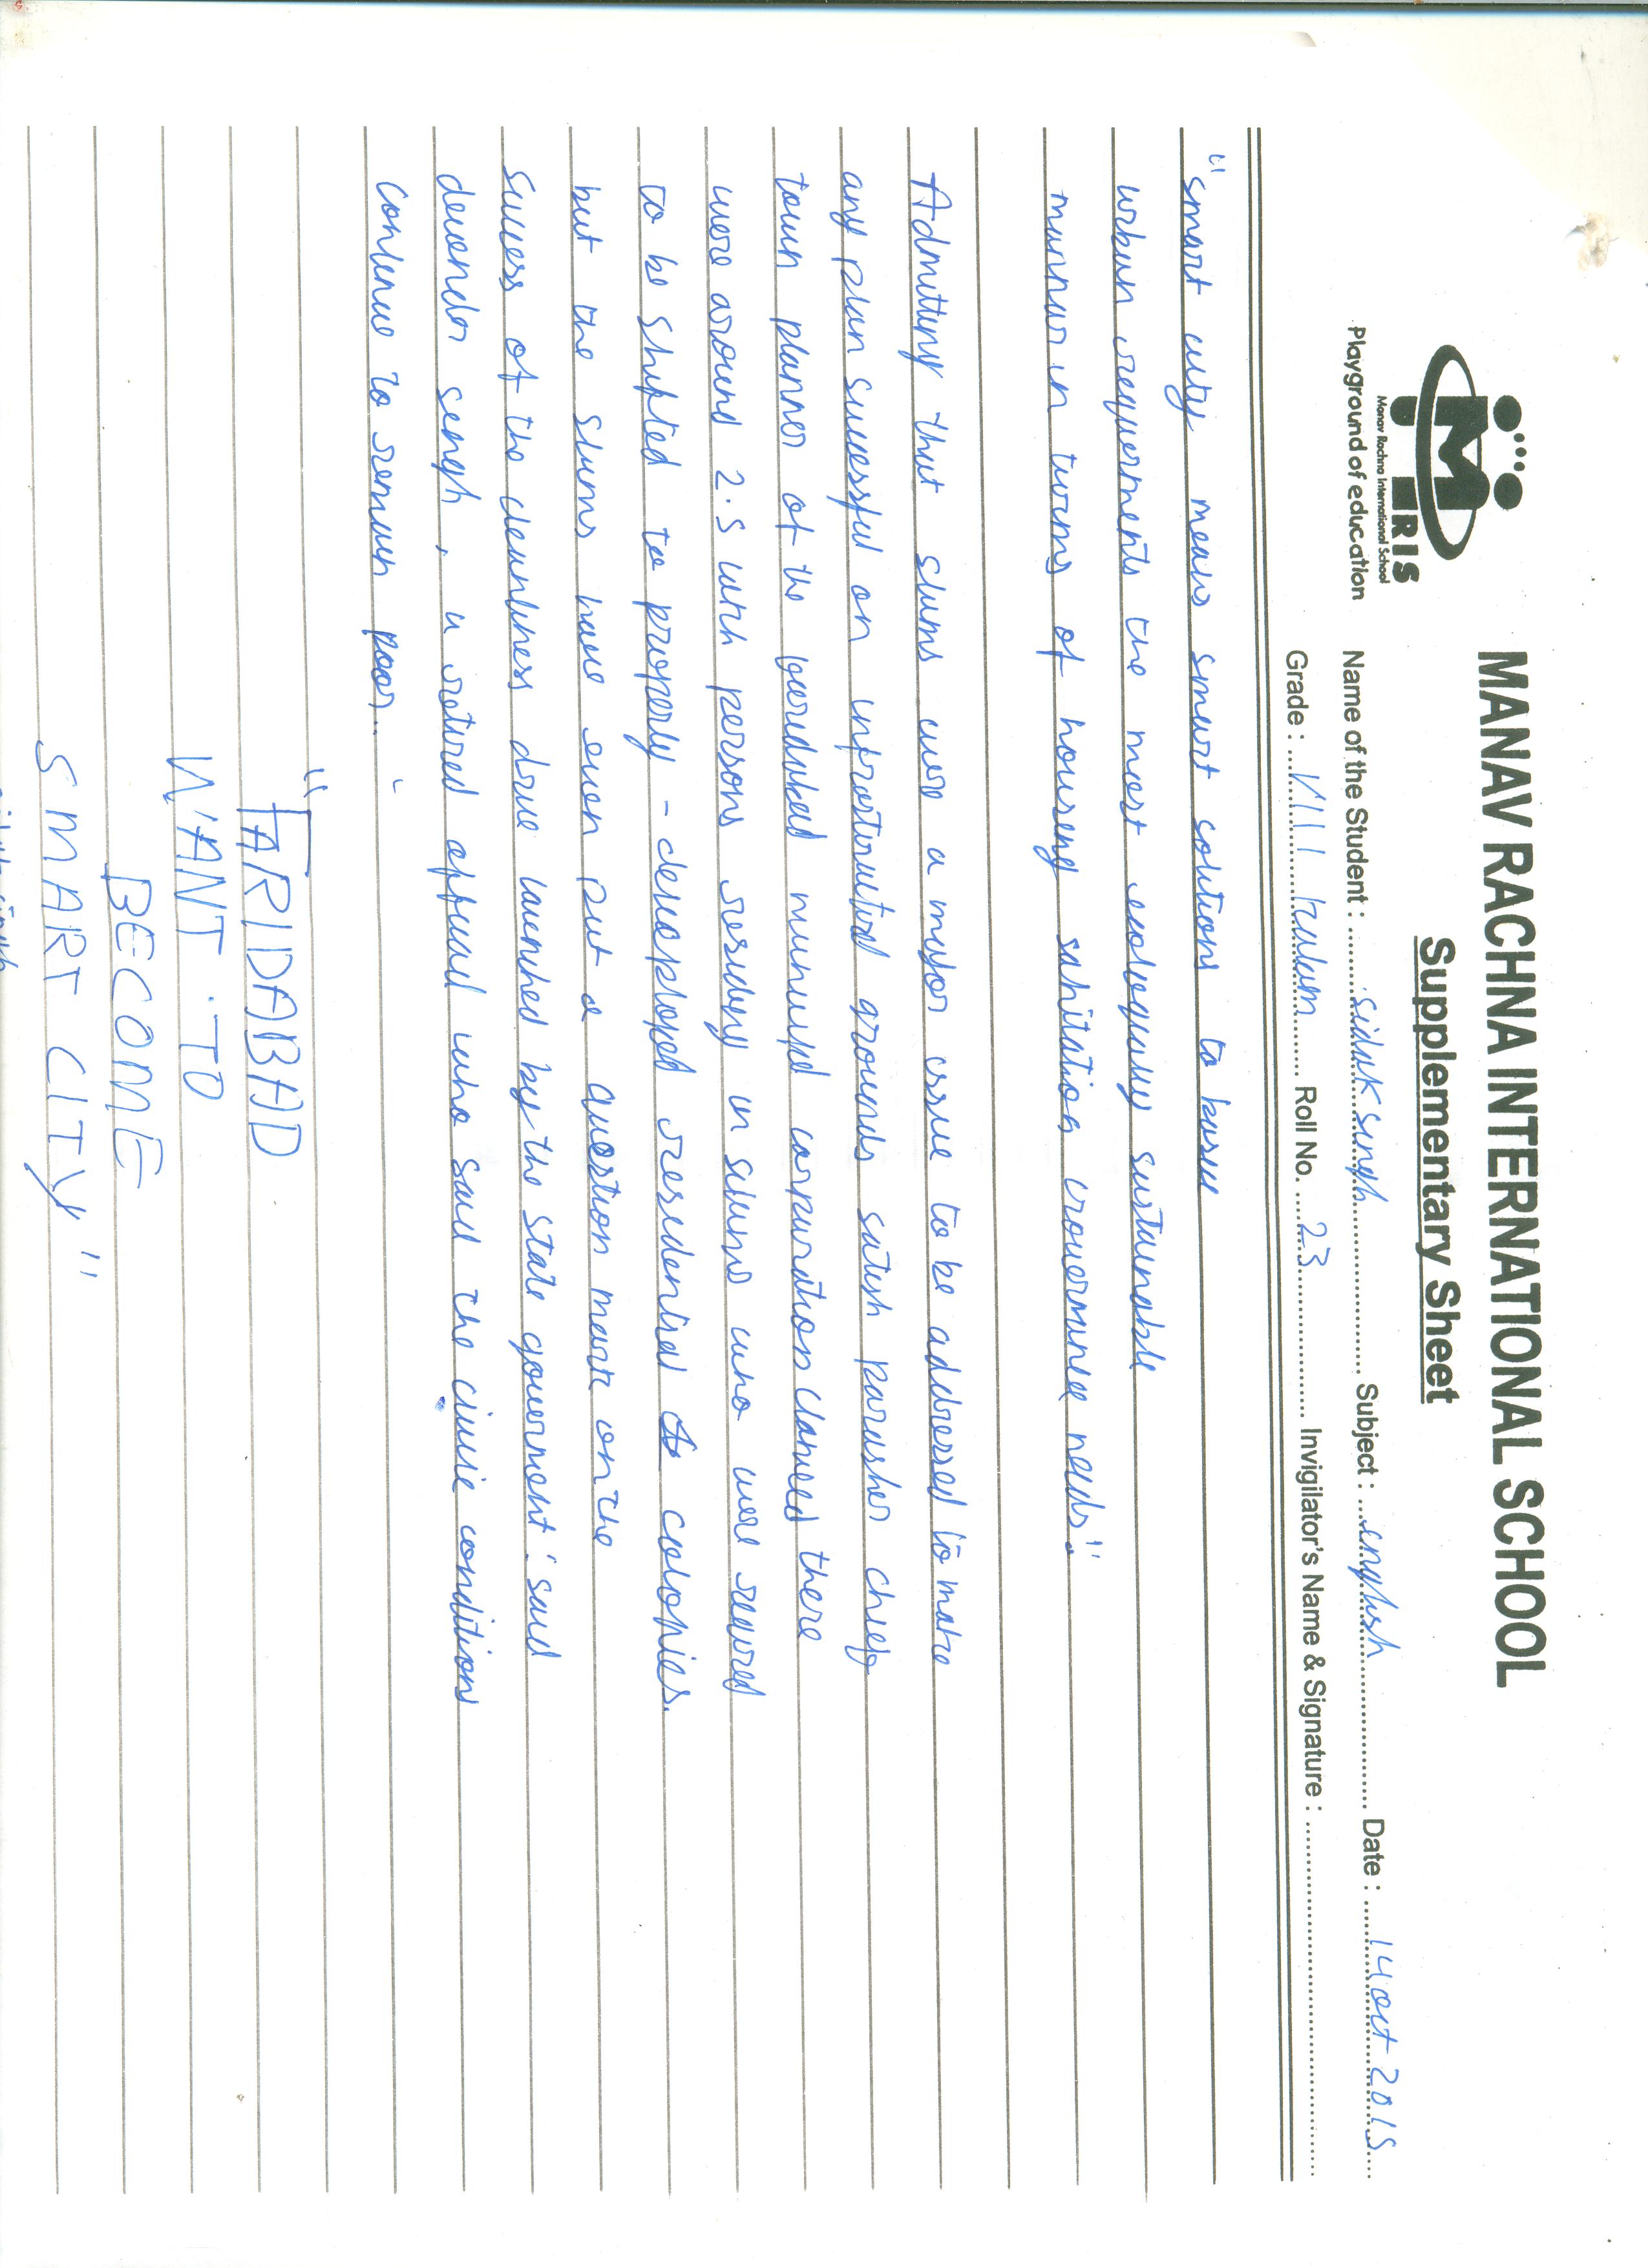 MANAV RACHNA INTERNATIONAL SCHOOL
Supplementary Sheet
MRIS
Manav Rachna International School
Playground of education
Name of the Student : Sidhak singh Subject : english Date : 14 oct 2015
Grade : VIII kadam Roll No. 23 Invigilator's Name & Signature :
"smart city means smart solutions to basic
urban requirments the most ecologicaly sustainable
mannar in turms of housing sanitation crouernance needs".
Admitting that slums were a major issue to be addressed to make
any plan successful on infrastructral grounds satish parasher chief
town planner of the municipal corporation claimed there
were around 2.5 lakh persons residing in slums who were required
to be shifted to properly - devloplped residential colonies.
but the slums have even put a question mark on the
success of the cleanliness drive launched by the state government' said
devender singh, a retired official who said the civic conditions
continue to remain poor."
"FARIDABAD
WANT TO
BECOME
SMART CITY"